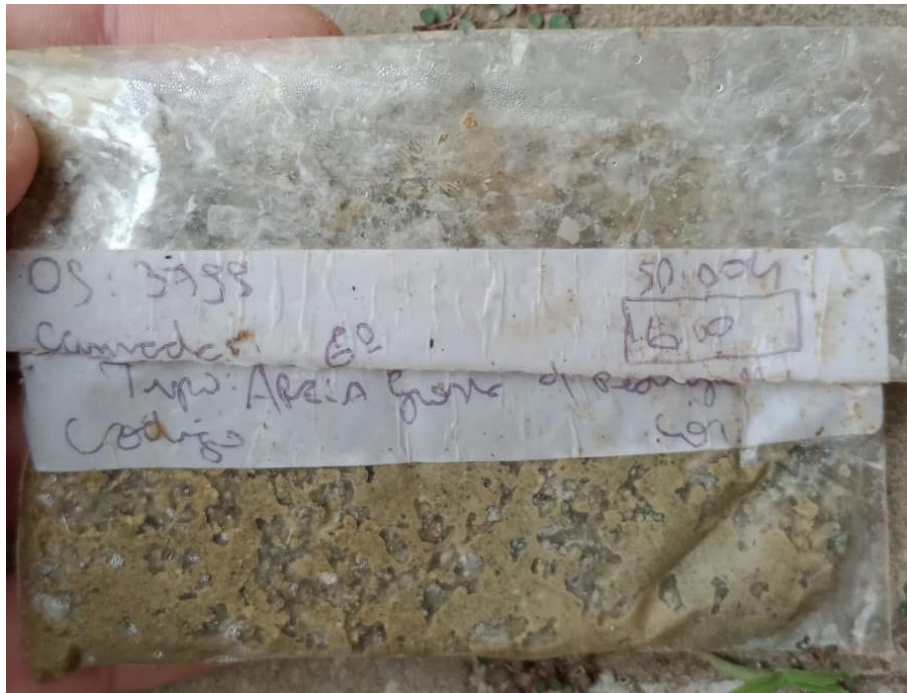 OS: 3799 50.004
Camada: 6º 1600
Tipo: AREIA Grossa c/
Código: